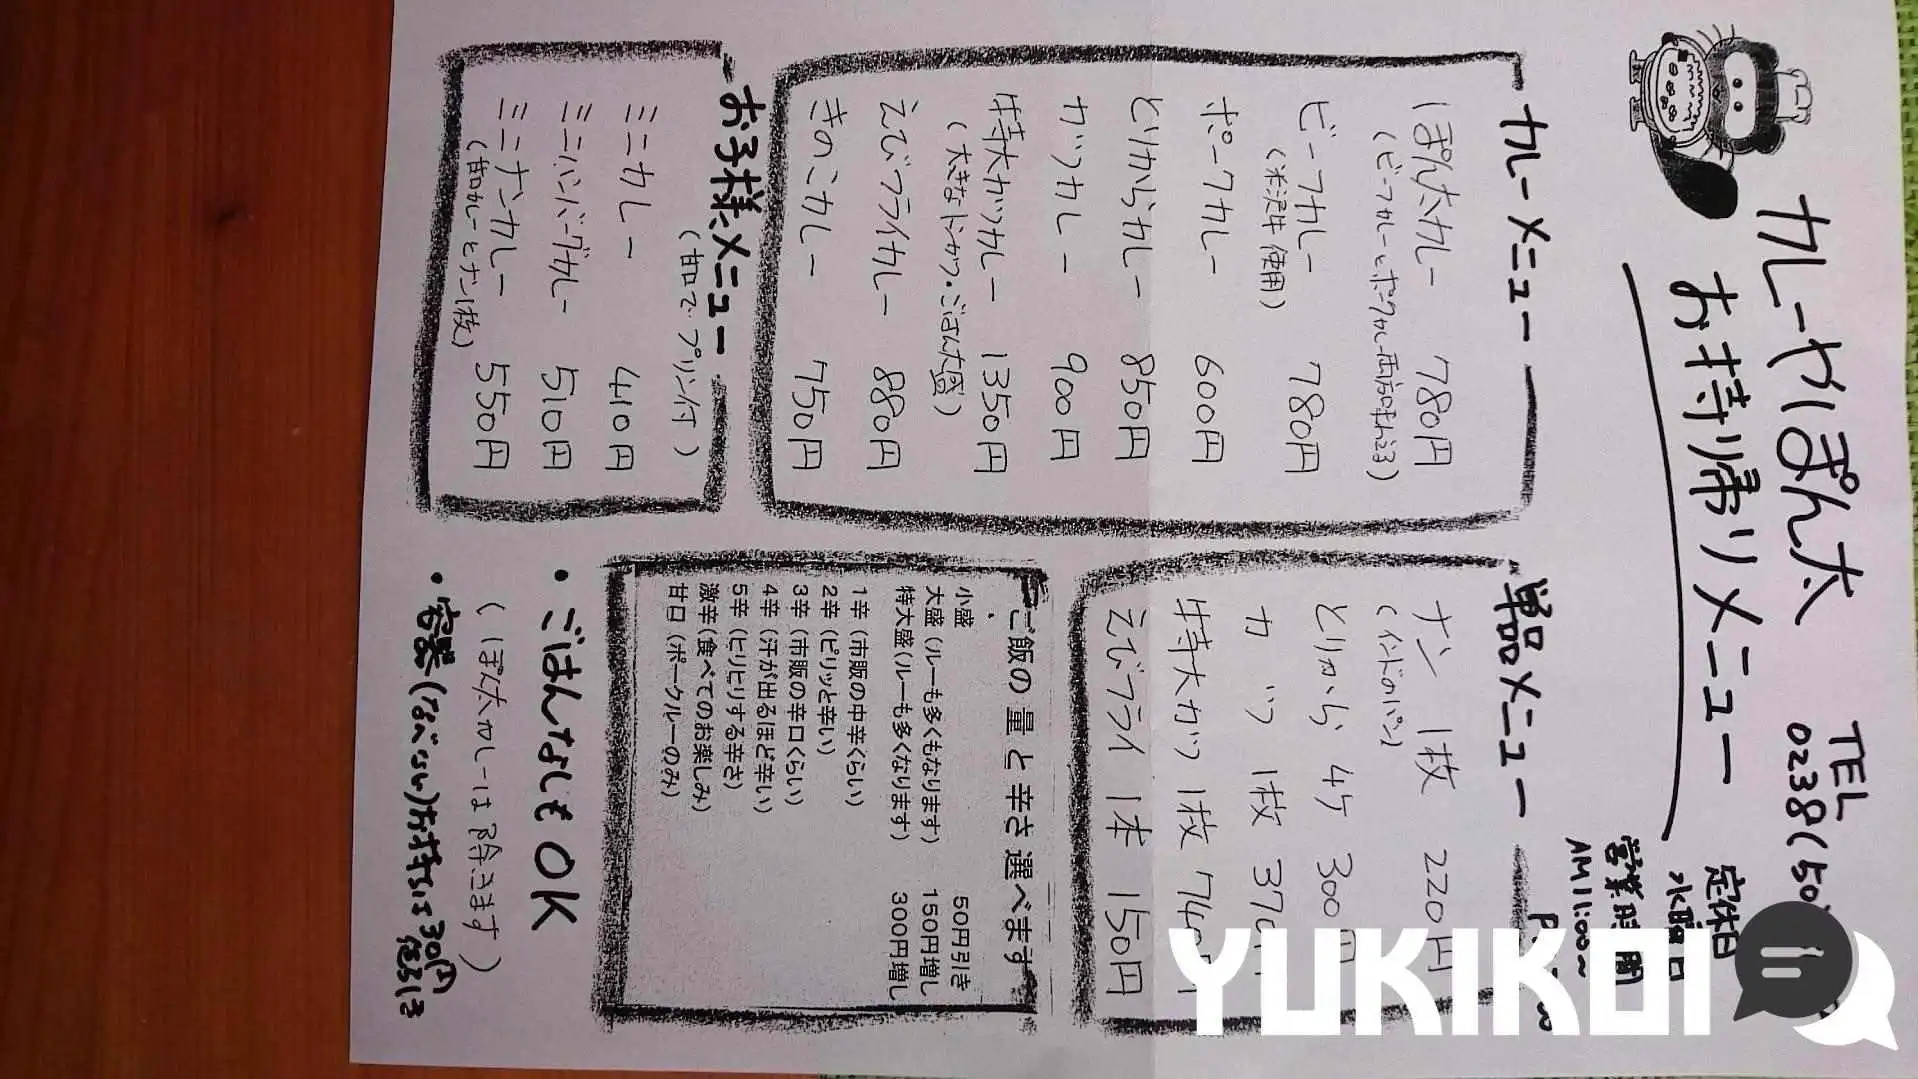 カレーやぽん太
お持ち帰りメニュー
TEL
0238(50
定休日
水曜日
営業時間
AM11:00~
カレーメニュー
ぽん太カレー 780円
(ビーフカレーとポークカレー両方の味)
ビーフカレー 780円
(米沢牛使用)
ポークカレー 600円
とりからカレー 850円
カツカレー 900円
特大カツカレー 1350円
(大きなトンカツ・ごはん大盛)
えびフライカレー 880円
きのこカレー 750円
お子様メニュー
(甘口で プリン付)
ミニカレー 410円
ミニハンバーグカレー 510円
ミニナンカレー 550円
(甘口カレーとナン1枚)
単品メニュー
ナン 1枚 220円
(インドのパン)
とりから 4ケ 300円
カツ 1枚 370円
特大カツ 1枚 740円
えびフライ 1本 150円
ご飯の量と辛さ選べます
小盛 50円引き
大盛(ルーも多くもなります) 150円増し
特大盛(ルーも多くなります) 300円増し
1辛(市販の中辛くらい)
2辛(ピリッと辛い)
3辛(市販の辛口くらい)
4辛(汗が出るほど辛い)
5辛(ヒリヒリする辛さ)
激辛(食べてのお楽しみ)
甘口(ポークルーのみ)
・ごはんなしもOK
(ぽん太カレーは除きます)
・容器(なべくらい)お持ちは30円
YUKIKOI